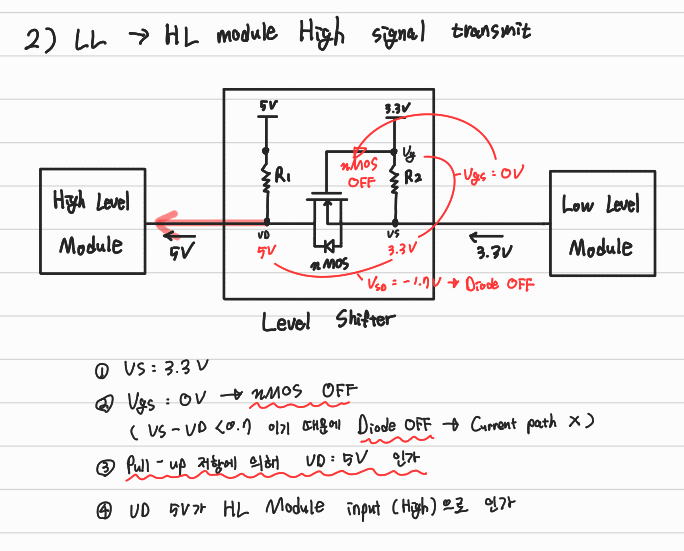 2) LL → HL module High signal transmit
5V
3.3V
nMOS
OFF
Vg
Vgs = 0V
R1
R2
High Level
Module
Low Level
Module
VD
5V
VS
3.3V
nMOS
5V
3.3V
VSD = -1.7V → Diode OFF
Level Shifter
① VS : 3.3V
② Vgs : 0V → nMOS OFF
( VS - VD < 0.7 이기 때문에 Diode OFF → Current path X )
③ Pull-up 저항에 의해 VD : 5V 인가
④ VD 5V가 HL Module input (High)으로 인가